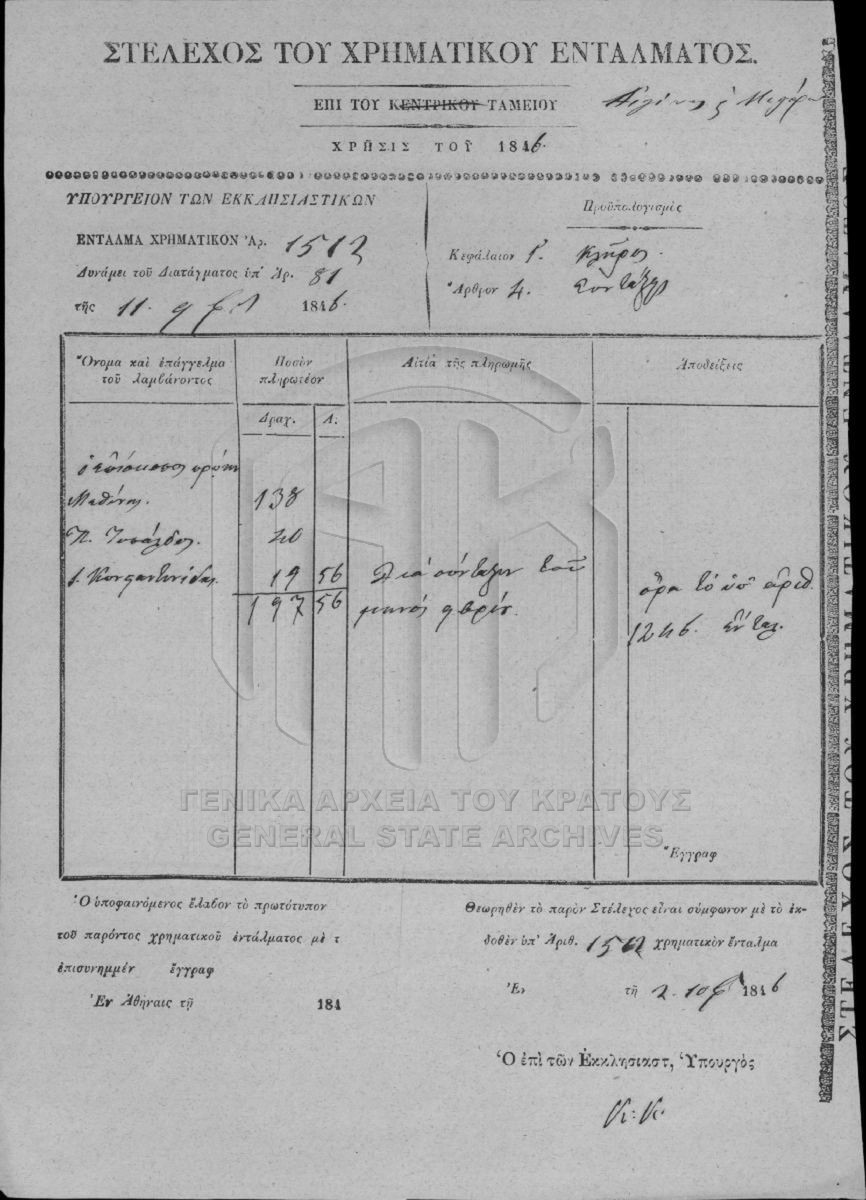 ΣΤΕΛΕΧΟΣ ΤΟΥ ΧΡΗΜΑΤΙΚΟΥ ΕΝΤΑΛΜΑΤΟΣ.
ΕΠΙ ΤΟΥ ΚΕΝΤΡΙΚΟΥ ΤΑΜΕΙΟΥ
ΧΡΗΣΙΣ ΤΟΥ 1846.
ΥΠΟΥΡΓΕΙΟΝ ΤΩΝ ΕΚΚΛΗΣΙΑΣΤΙΚΩΝ
ΕΝΤΑΛΜΑ ΧΡΗΜΑΤΙΚΟΝ Ἀρ. 1512
Δυνάμει τοῦ Διατάγματος ὑπ' Ἀρ. 81
τῆς 11. 1846.
Προϋπολογισμὸς
Κεφάλαιον Κλῆρος
Ἄρθρον 4. Συντάξεις
Ὄνομα καὶ ἐπάγγελμα τοῦ λαμβάνοντος
Ποσὸν πληρωτέον
Δραχ. Λ.
Αἰτία τῆς πληρωμῆς
Ἀποδείξεις
ὁ ἐπίσκοπος πρώην
Μεθώνης. 138
Π. 40
Κωνσταντινίδης. 19 56
197 56
Διὰ σύνταξιν τοῦ
μηνός
ὅρα τὸ ὑπ' ἀριθ.
1246. ἔνταλ.
Ἔγγραφ
Ὁ ὑποφαινόμενος ἔλαβον τὸ πρωτότυπον
τοῦ παρόντος χρηματικοῦ ἐντάλματος μὲ τ
ἐπισυνημμέν ἔγγραφ
Ἐν Ἀθήναις τῇ 184
Θεωρηθὲν τὸ παρὸν Στέλεχος εἶναι σύμφωνον μὲ τὸ ἐκ-
δοθὲν ὑπ' Ἀριθ. 1512 χρηματικὸν ἔνταλμα
Ἐν τῇ 2. 1846
Ὁ ἐπὶ τῶν Ἐκκλησιαστ, Ὑπουργὸς
Κ. Κ.
ΓΕΝΙΚΑ ΑΡΧΕΙΑ ΤΟΥ ΚΡΑΤΟΥΣ
GENERAL STATE ARCHIVES
ΣΤΕΛΕΧΟΣ ΤΟΥ ΧΡΗΜΑΤΙΚΟΥ ΕΝΤΑΛΜΑΤΟΣ